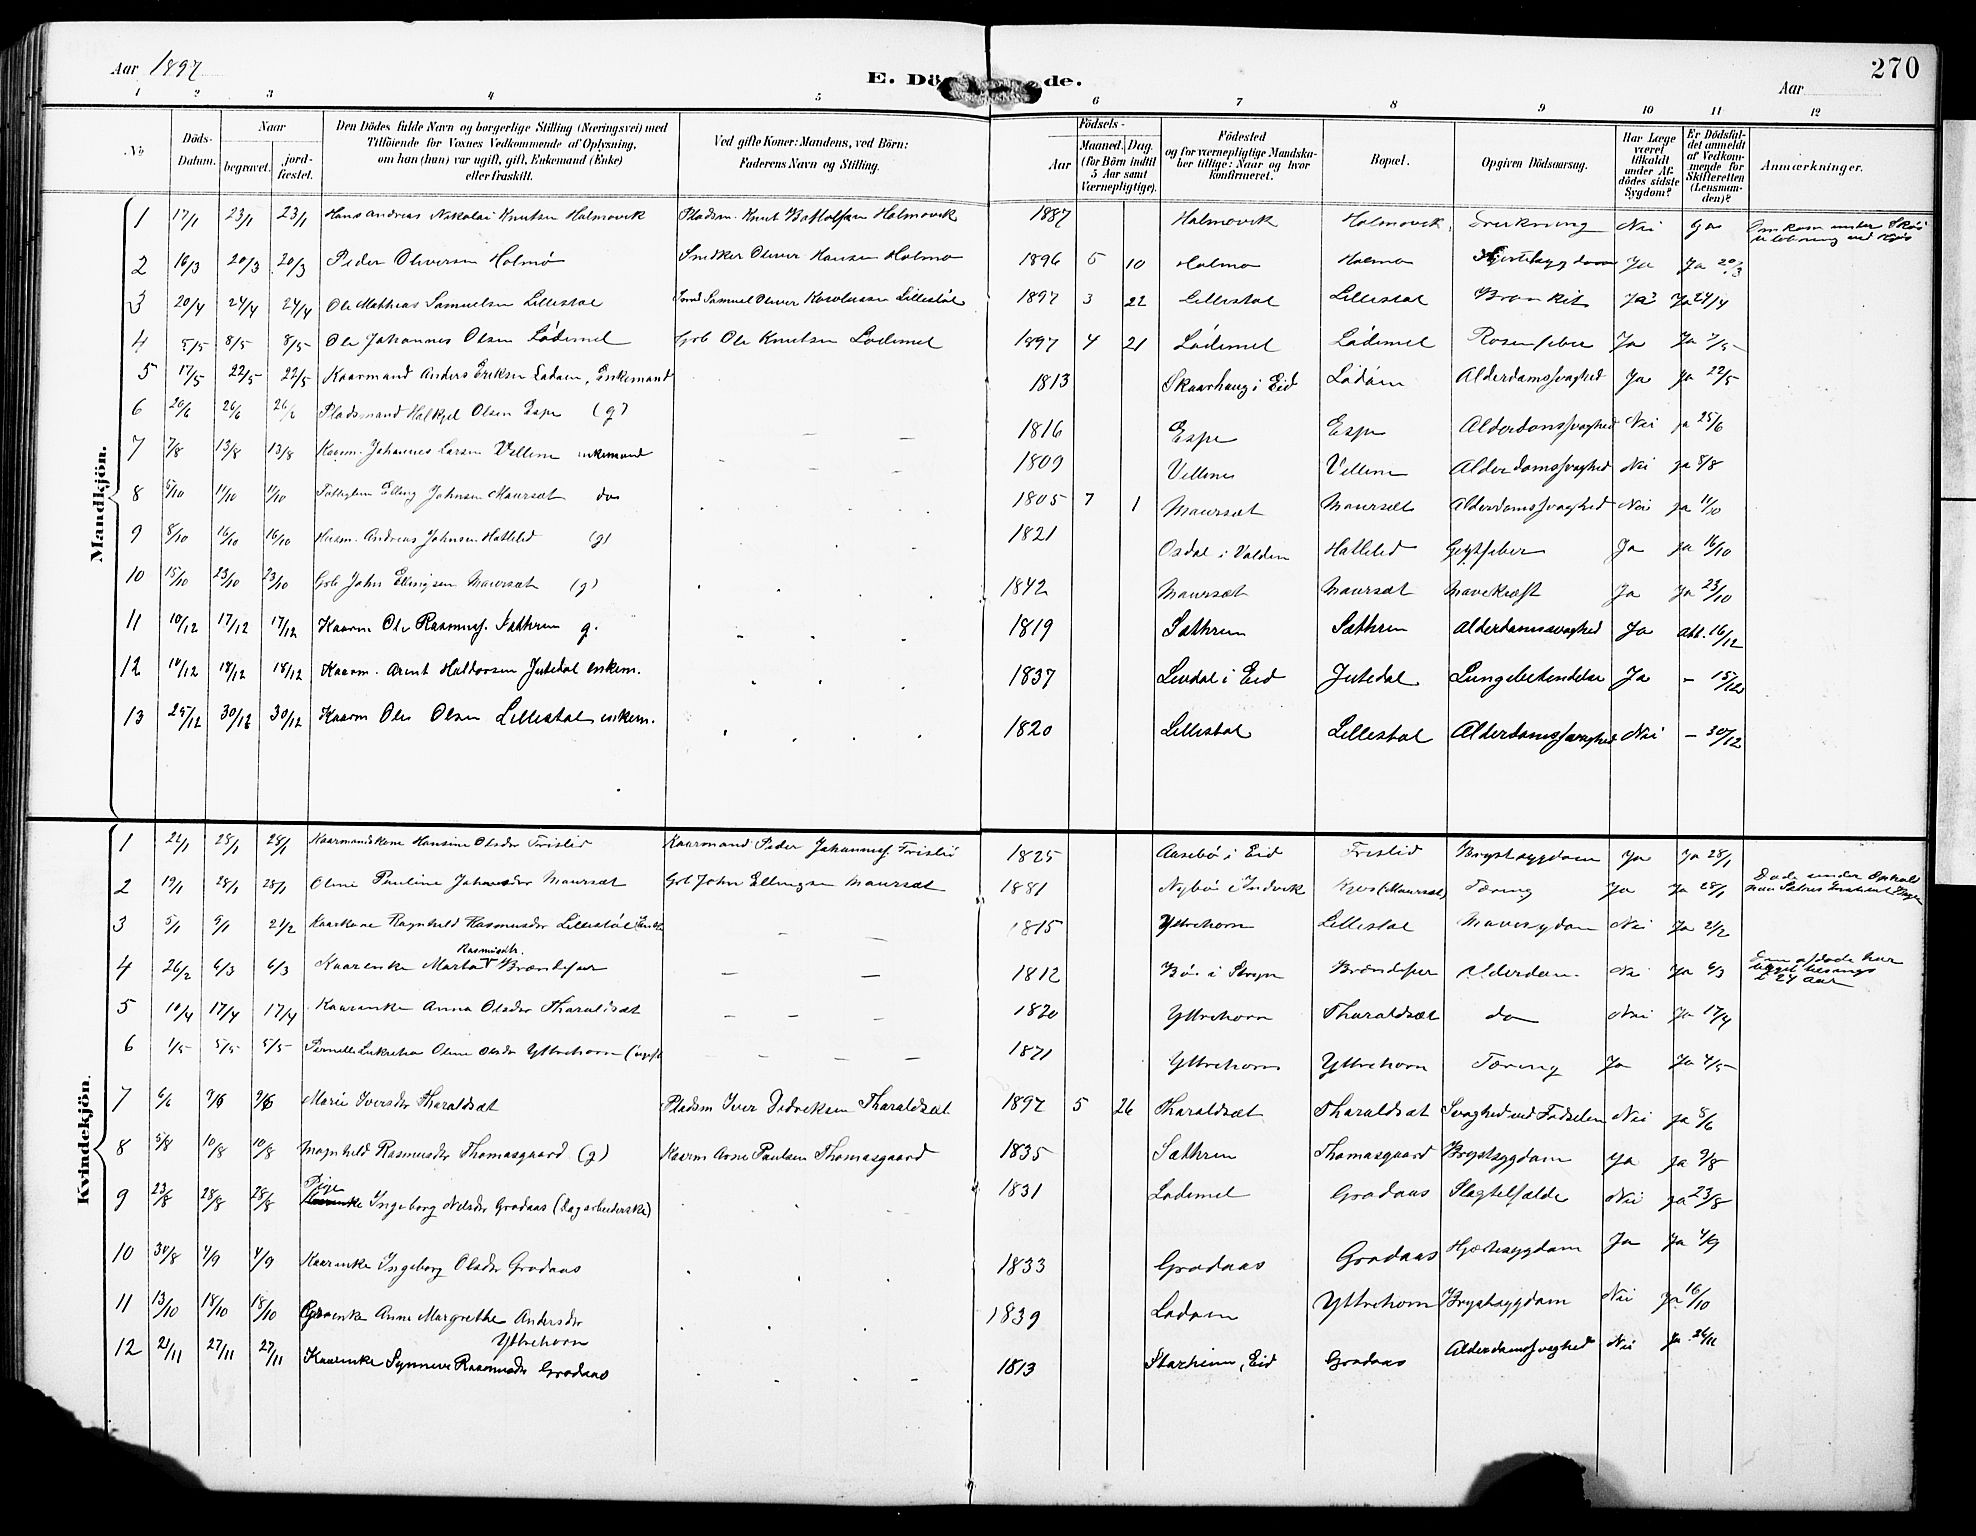 Aar 1897
E. Dö de.
Aar
270
1 2 3 4 5 6 7 8 9 10 11 12
No
Döds-Datum.
Naar
begravet.
jord-fæstet.
Den Dödes fulde Navn og borgerlige Stilling (Næringsvei) med
Tilföiende for Voxnes Vedkommende af Oplysning,
om han (hun) var ugift, gift, Enkemand (Enke)
eller fraskilt.
Ved gifte Koner: Mandens, ved Börn:
Faderens Navn og Stilling.
Födsels-
Aar
Maaned. Dag.
(for Börn indtil
5 Aar samt
Værnepligtige).
Födested
og for værnepligtige Mandska-
ber tillige: Naar og hvor
konfirmeret.
Bopæl.
Opgiven Dödsaarsag.
Har Læge
været
tilkaldt
under Af-
dödes sidste
Sygdom?
Er Dödsfal-
det anmeldt
af Vedkom-
mende for
Skifteretten
(Lensman-
den)?
Anmærkninger.
Mandkjön.
1 17/1 23/1 23/1 Hans Andreas Nikolai Knutsen Holmovik Pladsm. Knut Holmovik 1887 Holmovik Holmovik Drukning Nei Ja Omkom under
2 16/3 20/3 20/3 Peder Oliversen Holmø Snedker Oliver Hansen Holmø 1896 5 10 Holmø Holmø Hjertesygdom Ja Ja 20/3
3 20/4 24/4 24/4 Ole Mathias Samuelsen Lillestøl Samuel Oliver Lillestøl 1897 3 22 Lillestøl Lillestøl Bronkit Ja Ja 24/4
4 5/5 8/5 8/5 Ole Johannes Olsen Lødemel Gbr Ole Knutsen Lødemel 1897 4 21 Lødemel Lødemel Rosenfeber Ja Ja 7/5
5 17/5 22/5 22/5 Kaarmand Anders Eriksen Ladam, Enkemand 1813 Skaarhaug i Eid Ladam Alderdomssvaghed Ja Ja 22/5
6 20/6 26/6 26/6 Pladsmand Halkjel Olsen Espe (g) 1816 Espe Espe Alderdomssvaghed Nei ja 25/6
7 7/8 13/8 13/8 Kaarm. Johannes Larsen Vellene enkemand 1809 Vellene Vellene Alderdomssvaghed Nei ja 8/8
8 5/10 11/10 11/10 Elling Johnsen Maursæt do 1805 7 1 Maursæt Maursæt Alderdomssvaghed Nei ja 11/10
9 8/10 16/10 16/10 Husm. Andreas Johnsen Hatleled (g) 1821 Osdal i Valden Hatleled Gigtfeber Ja ja 16/10
10 15/10 23/10 23/10 Gbr John Ellingsen Maursæt (g) 1842 Maursæt Maursæt Mavekræft Ja Ja 23/10
11 10/12 17/12 17/12 Kaarm Ole Rasmuss. Sæthren g. 1819 Sæthren Sæthren Alderdomssvaghed Ja att. 16/12
12 10/12 18/12 18/12 Kaarm. Arent Haldorsen Jutedal enkem. 1837 Levdal i Eid Jutedal Lungebetendelse Ja – 15/12
13 25/12 30/12 30/12 Kaarm Ole Olsen Lillestøl enkem. 1820 Lillestøl Lillestøl Alderdomssvaghed Nei – 30/12
Kvindekjön.
1 22/1 28/1 28/1 Kaarmandskone Hansine Olsdr Fristid Kaarmand Peder Johanness. Fristid 1825 Aasebø i Eid Fristid Brystsygdom Ja Ja 28/1
2 19/1 28/1 28/1 Oline Pauline Johnsdr Maursæt Gbr John Ellingsen Maursæt 1881 Nybø i Indvik Kjos (Maursæt) Tæring Ja Ja 28/1 Døde under Ophold
3 5/1 5/1 21/2 Kaarkone Ragnhild Rasmusdr Lillestøl 1815 Yttrehorn Lillestøl Mavesygdom Nei Ja 2/2
4 26/2 6/3 6/3 Kaarenke Marta Rasmusdr. Brændefur 1812 Bø i Stryn Brændefur Alderdom Nei Ja 6/3 24 Aar
5 10/4 17/4 17/4 Kaarenke Anna Olsdr Tharaldsæt 1820 Yttrehorn Tharaldsæt do Nei Ja 17/4
6 1/5 5/5 5/5 Pernille Lukretia Oline Olsdr Yttrehorn (ugift) 1871 Yttrehorn Yttrehorn Tæring Ja Ja 4/5
7 6/6 9/6 9/6 Marie Iversdr Tharaldsæt Pladsm Iver Didriksen Tharaldsæt 1897 5 26 Tharaldsæt Tharaldsæt Svaghed ved Fødselen Nei ja 8/6
8 5/8 10/8 10/8 Magnhild Rasmusdr Thomasgaard (g) Kaarm Arne Paulsen Thomasgaard 1835 Sæthren Thomasgaard Brystsygdom Ja ja 9/8
9 23/8 28/8 28/8 Pige Ingeborg Nilsdr Gradaas (Dagarbeiderske) 1831 Lødemel Gradaas Slagtelfælde Nei ja 23/8
10 30/8 4/9 4/9 Kaarenke Ingeborg Olsdr Gradaas 1833 Gradaas Gradaas Hjertesygdom Ja Ja 4/9
11 13/10 18/10 18/10 Anne Margrethe Andersdr Yttrehorn 1839 Ladam Yttrehorn Brystsygdom Nei Ja 16/10
12 21/11 27/11 27/11 Kaarenke Synneve Rasmusdr Gradaas 1813 Starheim, Eid Gradaas Alderdomssvaghed Nei Ja 26/11